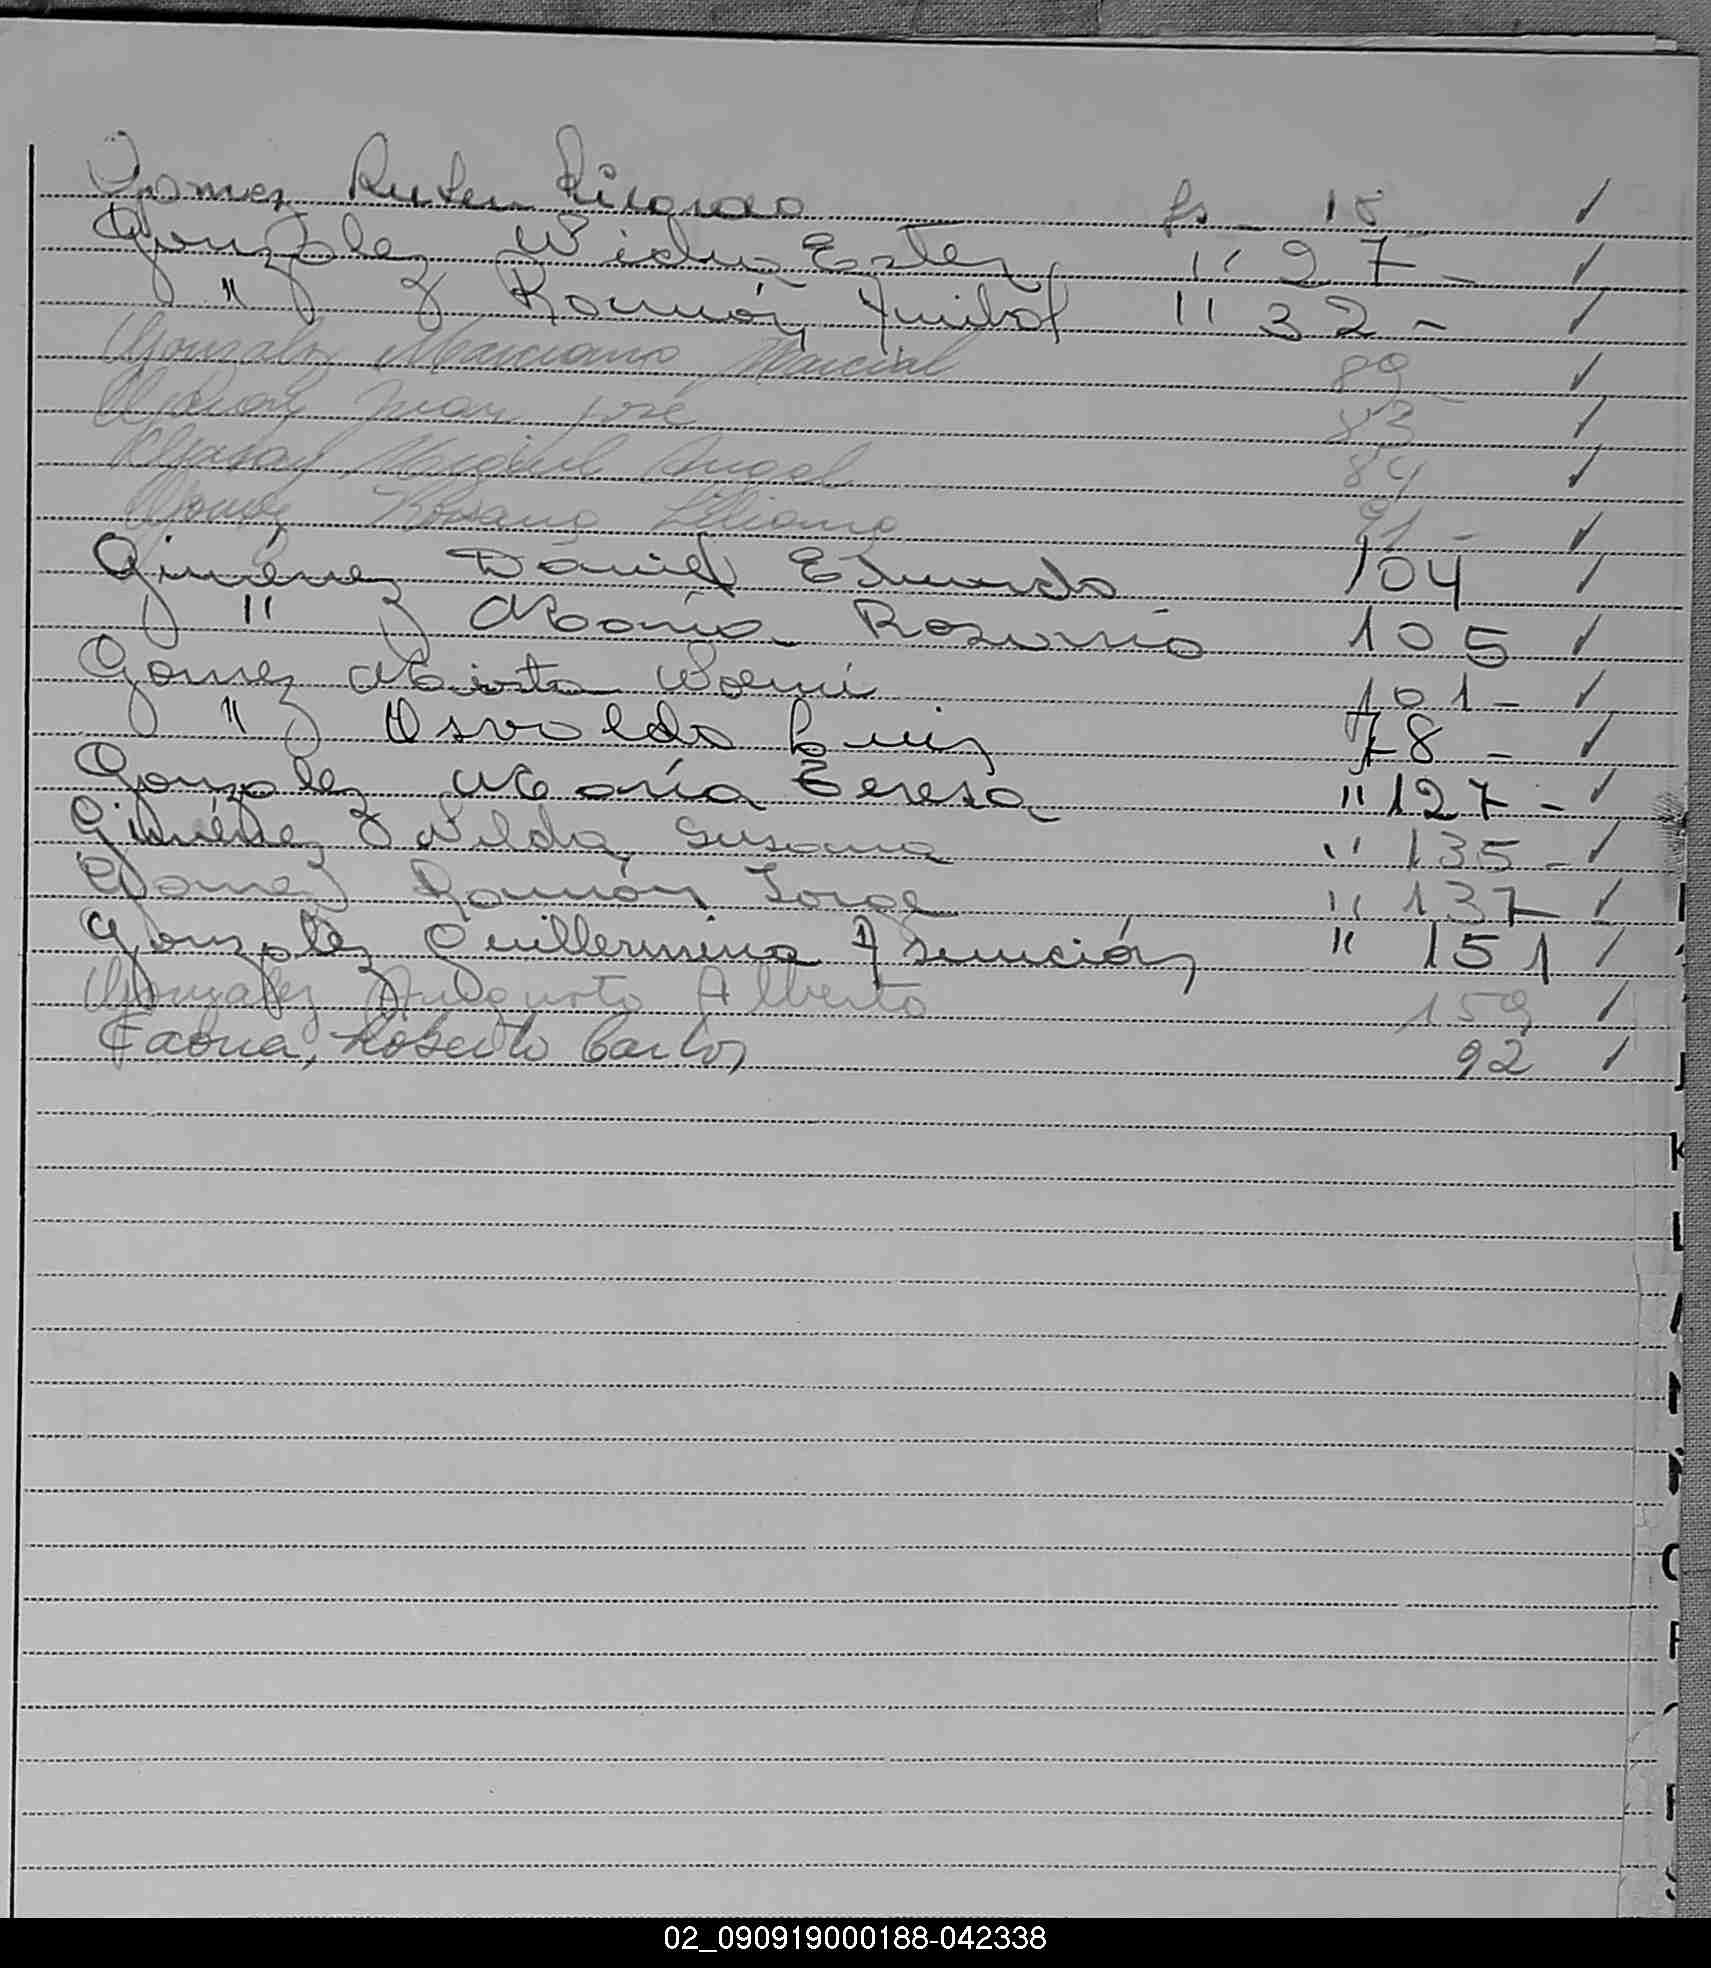 Gomez Ruben Ricardo fs - 18 ✓
Gonzalez Nidia Ester " 27 - ✓
" Ramón Anibal " 32 - ✓
Gonzalez Marciano Marcial 89 ✓
Juan José 83 ✓
Garay Miguel Angel 84 ✓
Gomez Rosana Liliana 91 - ✓
Giménez Daniel Eduardo 104 ✓
" María Rosario 105 ✓
Gomez Mirta Noemí 101 - ✓
" Osvaldo Luis 78 - ✓
Gonzalez María Teresa " 127 - ✓
Giménez Nilda Susana " 135 - ✓
Gomez Ramón Jorge " 137 - ✓
Gonzalez Guillermina Asunción " 151 ✓
Gonzalez Augusto Alberto 159 ✓
Gaona, Roberto Carlos 92 ✓
K
L
02_090919000188-042338